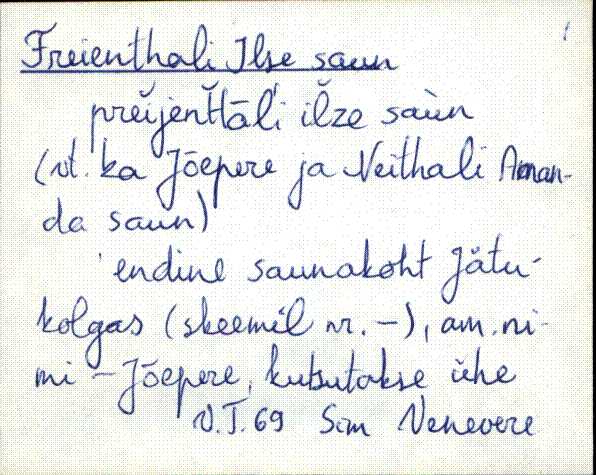 Freienthali Ilse saun
1
prei̬jent̆t̆āl'i il̆ze saùn
(vt. ka Jõepere ja Neithali Aman-
da saun)
endine saunakoht Jätu-
kolgas (skeemil nr. –), am. ni-
mi – Jõepere, kutsutakse ühe
V.T. 69 Sim Venevere